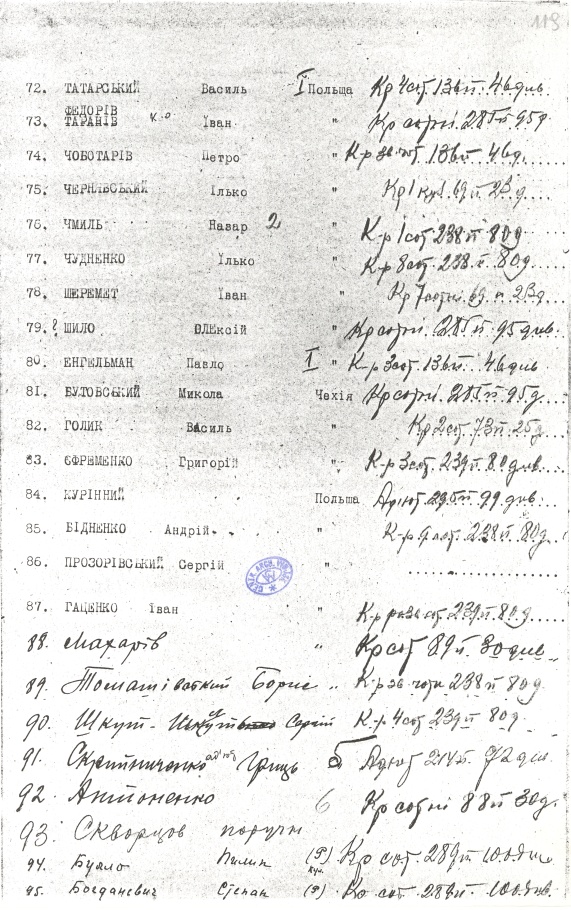 118
72. ТАТАРСЬКИЙ Василь I Польща Кр 4 сот. 136 п. 46 див.
ФЕДОРІВ
73. ТАРАНІВ Іван " Кр сотні. 285 п 95 д
74. ЧОБОТАРІВ Петро " К-р 136 п. 46 д.
75. Ілько " Кр 69 п 23 д.
76. ЧМИЛЬ Назар 2 " К-р 1 сот. 238 п 80 д
77. ЧУДНЕНКО Ілько " К-р 8 сот. 238 п. 80 д.
78. ШЕРЕМЕТ Іван " Кр 7 сотні 69 п 23 д
79. ? ШИЛО ОЛЕксій " Кр сотні. 285 п 95 див.
80. ЕНГЕЛЬМАН Павло I " К-р 3 сот. 136 п. 46 див
81. БУТОВСЬКИЙ Микола Чехія Кр сотні. 285 п 95 д.
82. ГОЛИК Василь " Кр 2 сот. 73 п. 25 д.
83. ЄФРЕМЕНКО Григорій " К-р 3 сот. 239 п. 80 див.
84. КУРІННИЙ Польша Адют. 295 п 99 див
85. БІДНЕНКО Андрій. " К-р сот. 238 п. 80 д.
86. ПРОЗОРІВСЬКИЙ Сергій "
87. ГАЦЕНКО Іван " К-р сот. 239 п. 80 д.
88. Махарів " Кр сот 89 п. 30 див.
89. Борис " К-р зв. чоти 238 п 80 д.
90. Шкут- Сергій К-р 4 сот 239 п 80 д.
91. Гриць 5 Адют 214 п. 72 див.
92. Антоненко 6 Кр сотні 88 п 30 д.
93. Скворцов поручн
94. Пилип (Р) Кр сот. 289 п 100 див
95. Богданевич Степан (Р) Кр сот 289 п 100 див.